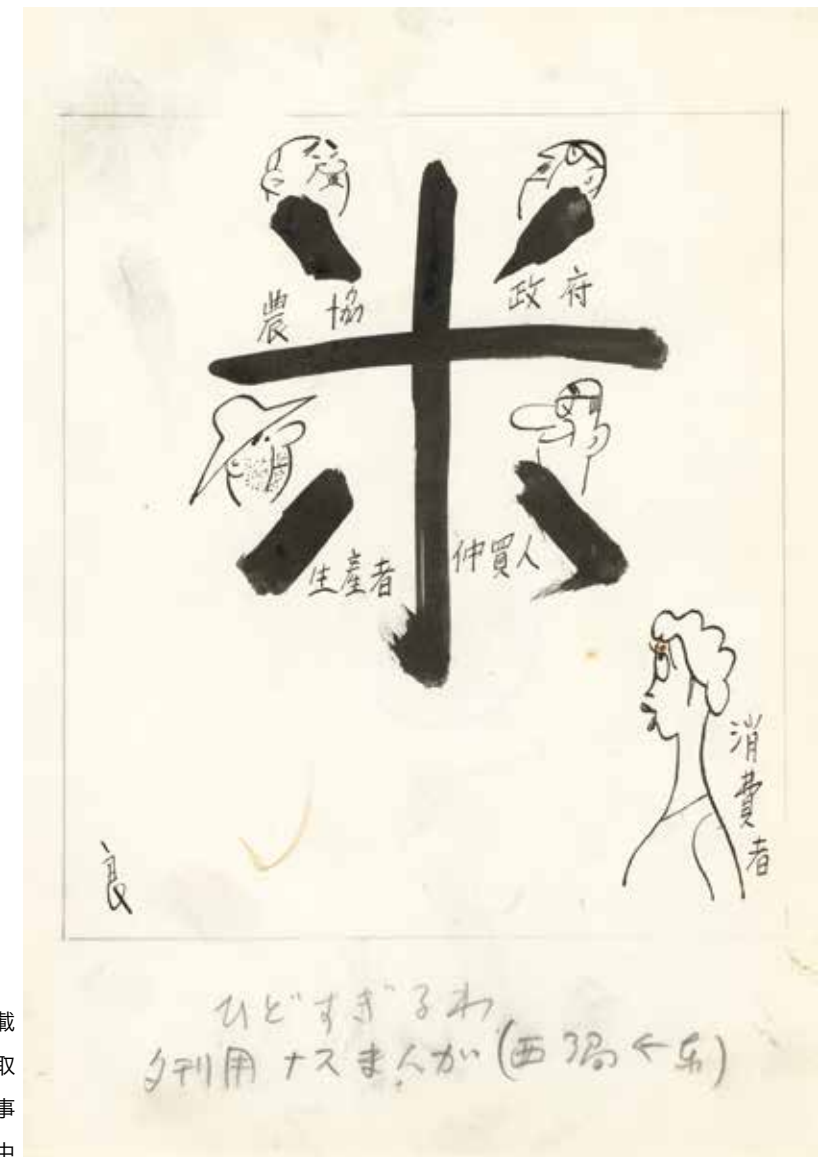 米
農協
政府
生産者
仲買人
消費者
良
ひどすぎるわ
夕刊用 ナスまんが(西3局←東)
載
取
事
由